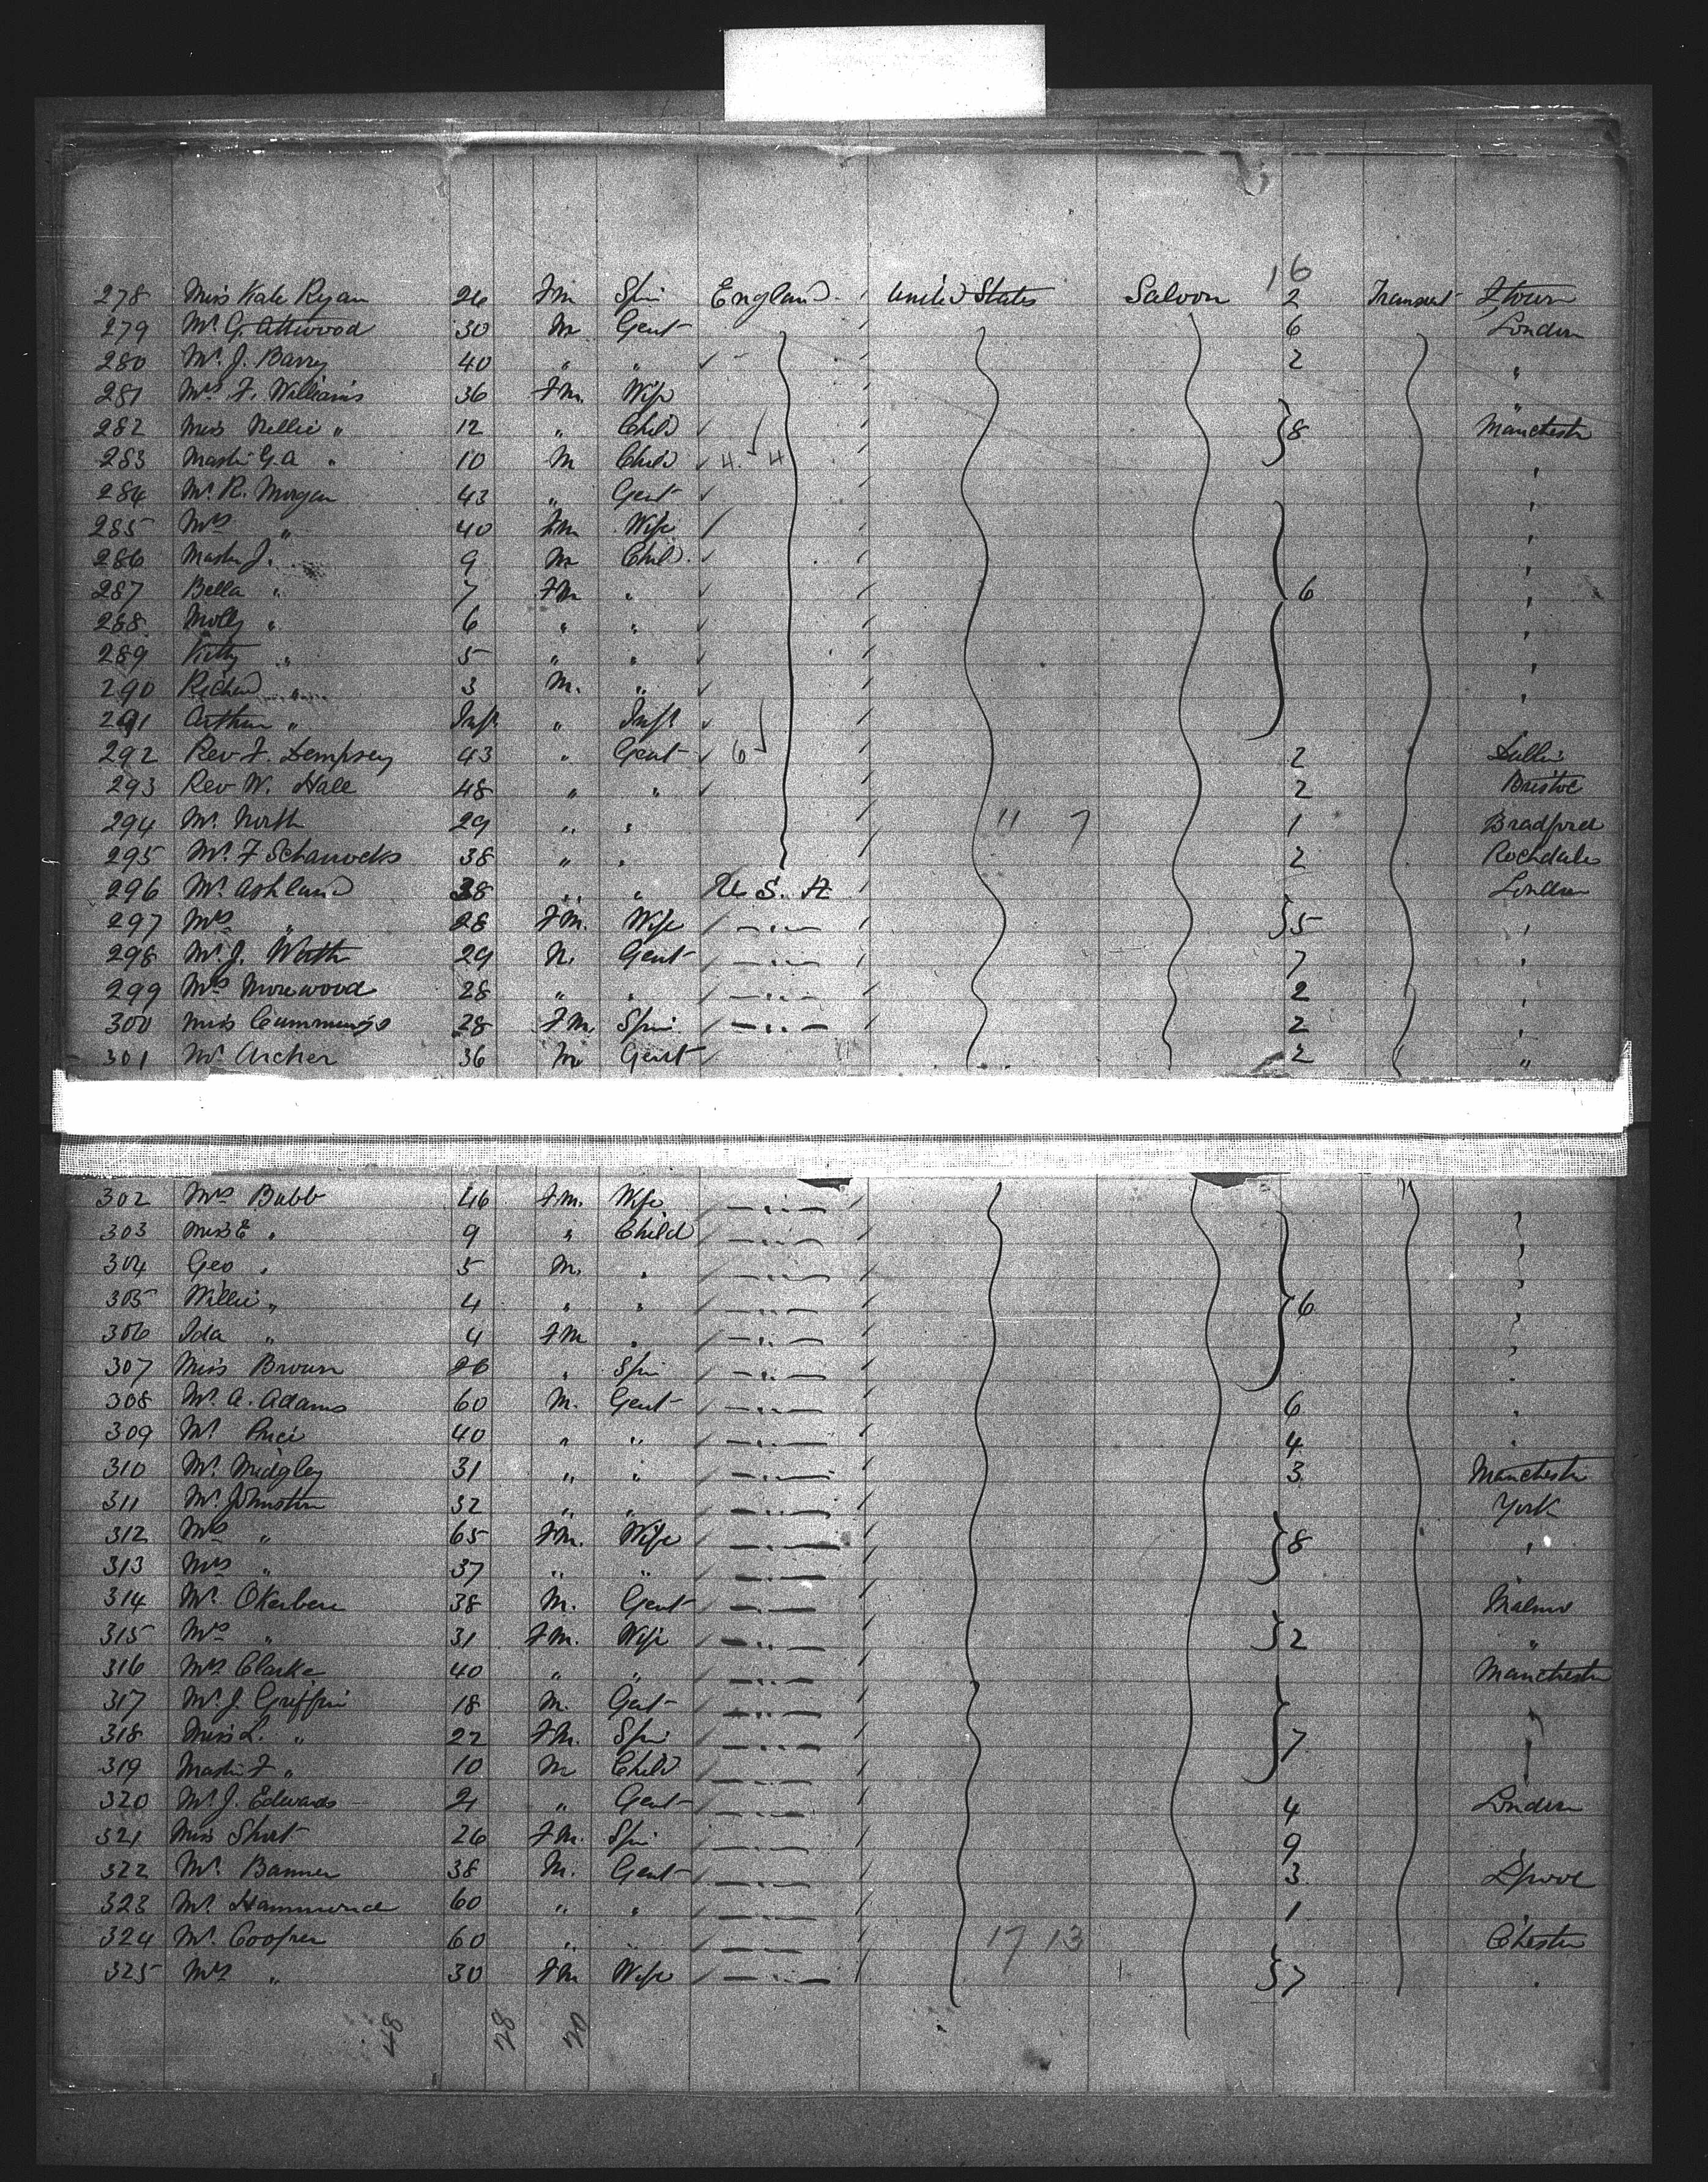 16
278 Miss Kate Ryan 26 Fm Spin England United States Saloon 2 Transient Qtown
279 Mr G. Attwood 30 M Gent 6 London
280 Mr J. Barry 40 " " 2 "
281 Mrs F. Williams 36 Fm. Wife "
282 Miss Nellie " 12 " Child 8 Manchestr
283 Mastr G. A " 10 M Child 4 4 "
284 Mr R. Morgan 43 " Gent "
285 Mrs " 40 Fm Wife "
286 Mastr J. " 9 M Child "
287 Bella " 7 Fm " 6 "
288 Molly " 6 " " "
289 Kitty " 5 " " "
290 Richard " 3 M. " "
291 Arthur " Inft " Inft
292 Rev F. Dempsey 43 " Gent 6 2 Dublin
293 Rev W. Hall 48 " " 2 Bristol
294 Mr North 29 " " 11 7 1 Bradford
295 Mr F 38 " " 2 Rochdale
296 Mr Ashland 38 " " U. S. A London
297 Mrs " 28 Fm. Wife — " — 5 "
298 Mr J. Worth 29 M Gent — " — 7 "
299 Mrs Morewood 28 " " — " — 2 "
300 Miss Cummings 28 Fm. Spin — " — 2 "
301 Mr Archer 36 M Gent 2 "
302 Mrs Bubb 46 Fm. Wife — " — "
303 Miss E " 9 " Child — " — "
304 Geo " 5 M. " — " — "
305 Willie " 4 " " — " — 6 "
306 Ida " 4 Fm " — " — "
307 Miss Brown 26 " Spin — " — "
308 Mr A. Adams 60 M. Gent — " — 6 "
309 Mr Price 40 " " — " — 4 "
310 Mr Midgley 31 " " — " — 3 Manchestr
311 Mr Johnston 32 " " — " — York
312 Mrs " 65 Fm. Wife — " — 8 "
313 Mrs " 37 " " — " — "
314 Mr 38 M. Gent — " — Malmo
315 Mrs " 31 Fm. Wife — " — 2 "
316 Mrs Clarke 40 " " — " — Manchestr
317 Mr J. Griffin 18 M. Gent — " — "
318 Miss L. " 22 Fm. Spin — " — 7 "
319 Mastr F " 10 M Child — " —
320 Mr J. Edwards 21 " Gent — " — 4 London
321 Miss Short 26 Fm. Spin — " — 9 "
322 Mr Banner 38 M. Gent — " — 3 Lpool
323 Mr Hammond 60 " " — " — 1 "
324 Mr Cooper 60 " " — " — 17 13 Chester
325 Mrs " 30 Fm Wife — " — 7 "
48 28 20